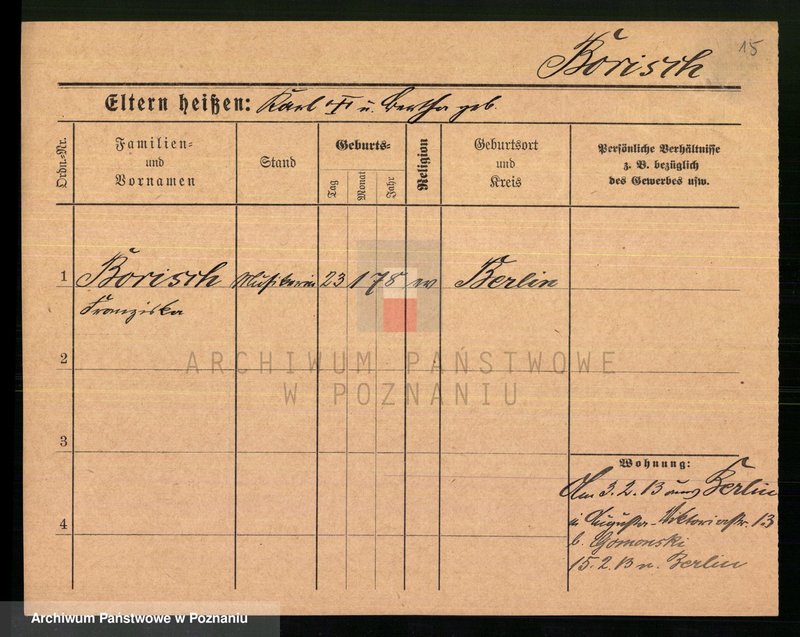 15
Borisch
Eltern heißen: Karl u. Bertha geb.
Ordn.-Nr.
Familien-
und
Vornamen
Stand
Geburts-
Tag
Monat
Jahr
Religion
Geburtsort
und
Kreis
Persönliche Verhältnisse
z. B. bezüglich
des Gewerbes usw.
1 Borisch Musikerin 23 1 78 ev Berlin
Franziska
2
ARCHIWUM PAŃSTWOWE
W POZNANIU
3
Wohnung:
Am 3.2.13 aus Berlin
in Augusta-Viktoriastr. 13
4
b. Gomonski
15.2.13 n. Berlin
Archiwum Państwowe w Poznaniu